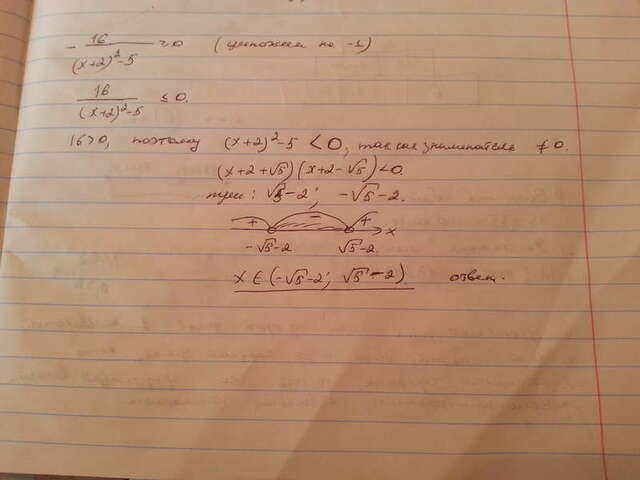 - 16/((x+2)²-5) ≥0 (умножим на -1)
16/((x+2)²-5) ≤ 0.
16>0, поэтому (x+2)²-5 <0, так как знаменатель ≠0.
(x+2+√5)(x+2-√5)<0.
√5-2; -√5-2.
+ - + x
-√5-2 √5-2.
x ∈ (-√5-2; √5-2). ответ.